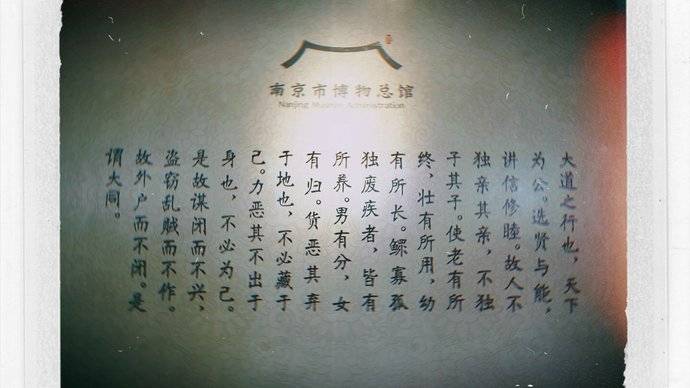 南京市博物总馆
Nanjing Museum Administration
大道之行也，天下
为公。选贤与能，
讲信修睦。故人不
独亲其亲，不独
子其子。使老有所
终，壮有所用，幼
有所长。鳏寡孤
独废疾者，皆有
所养。男有分，女
有归。货恶其弃
于地也，不必藏于
己。力恶其不出于
身也，不必为己。
是故谋闭而不兴，
盗窃乱贼而不作。
故外户而不闭。是
谓大同。